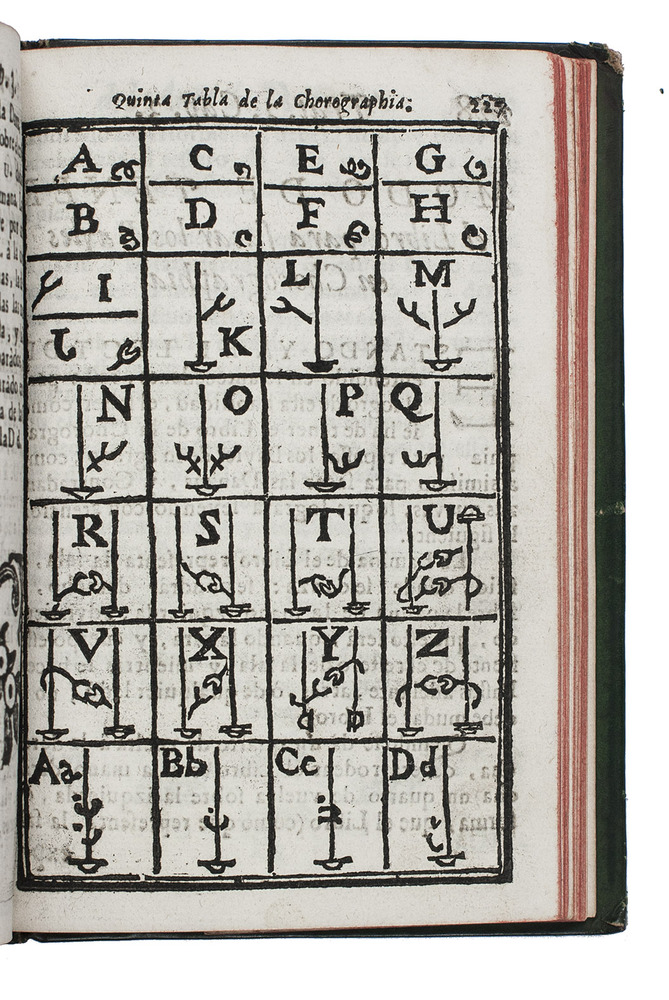 Quinta Tabla de la Chorographia: 227
A C E G
B D F H
I L M
J K
N O P Q
R S T U
V X Y Z
Aa Bb Cc Dd